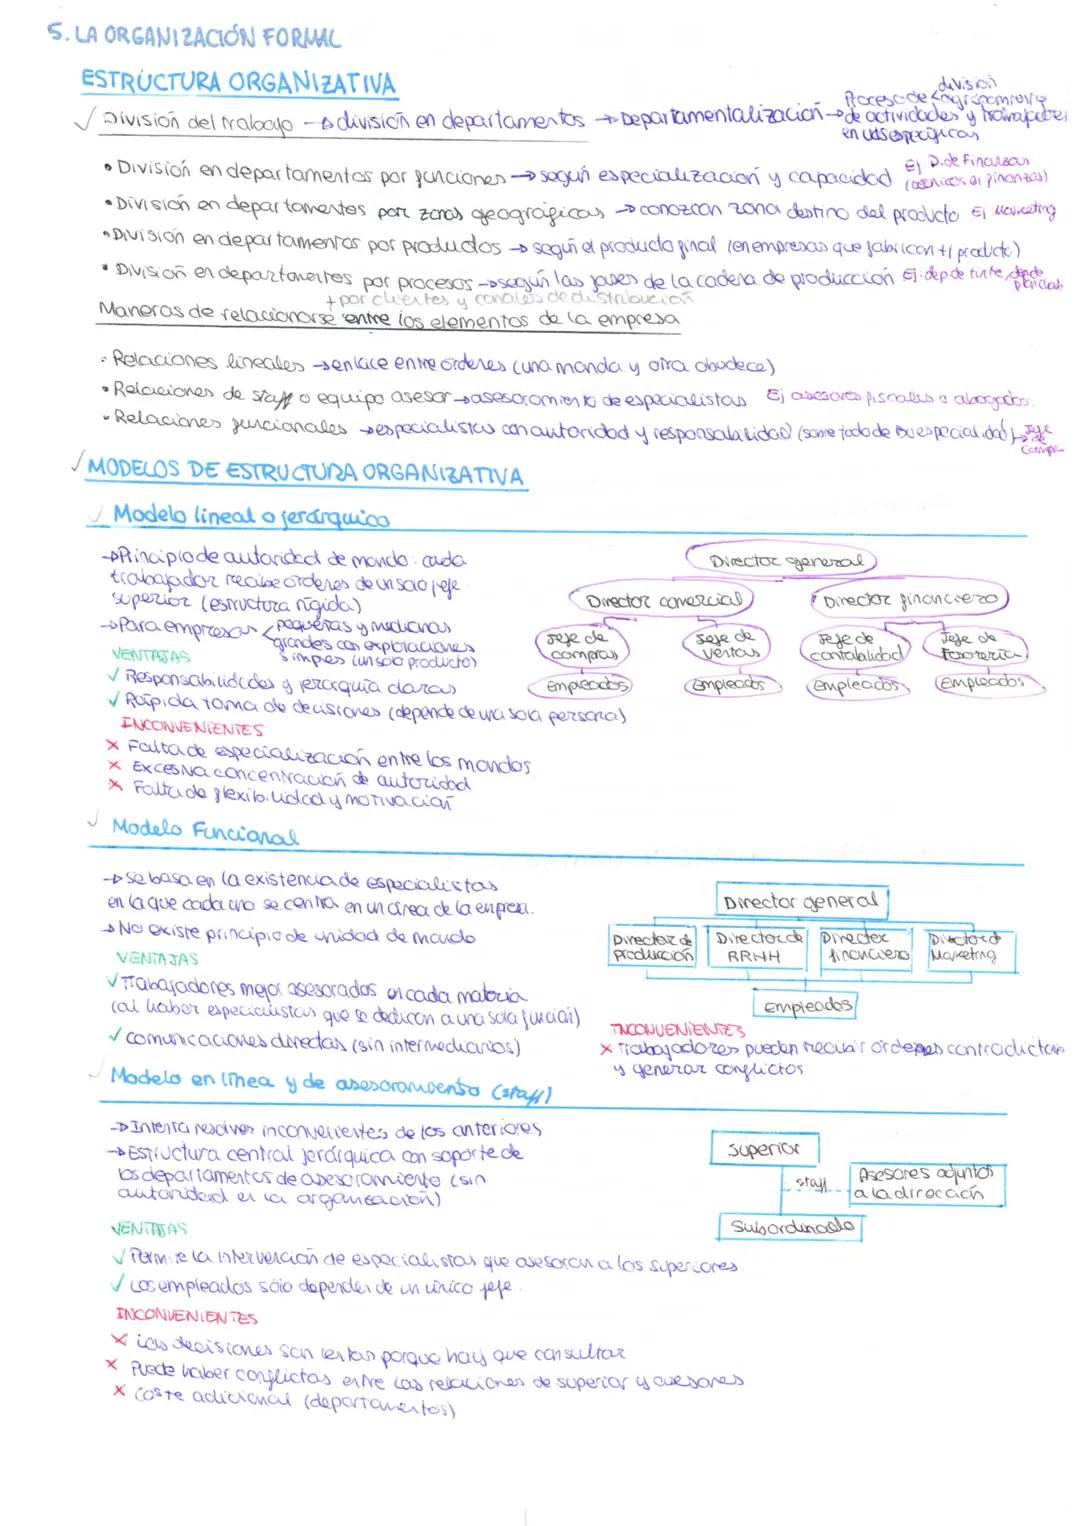 5. LA ORGANIZACIÓN FORMAL
ESTRUCTURA ORGANIZATIVA
✓ División del trabajo → división en departamentos → Departamentalización → Proceso de < división agrupamiento
de actividades y trabajadores
en uds específicas
• División en departamentos por funciones → según especialización y capacidad Ej D. de Finanzas
(técnicos en finanzas)
• División en departamentos por zonas geográficas → conozcan zona destino del producto Ej Marketing
• División en departamentos por productos → según el producto final (en empresas que fabrican +1 producto)
• División en departamentos por procesos → según las fases de la cadena de producción Ej: dep de tinte, dep de
+ por clientes y canales de distribución
Maneras de relacionarse entre los elementos de la empresa
• Relaciones lineales → enlace entre órdenes (una manda y otra obedece)
• Relaciones de staff o equipo asesor → asesoramiento de especialistas Ej asesores fiscales o abogados.
• Relaciones funcionales → especialistas con autoridad y responsabilidad (sobre todo de su especialidad) → Jefe de compra
✓ MODELOS DE ESTRUCTURA ORGANIZATIVA
✓ Modelo lineal o jerárquico
→ Principio de autoridad de mando: cada
trabajador recibe órdenes de un solo jefe
superior (estructura rígida)
→ Para empresas < pequeñas y medianas
grandes con explotaciones
simples (un solo producto)
Director general
Director comercial
Director financiero
Jefe de compras
Jefe de ventas
Jefe de contabilidad
Jefe de Tesorería
Empleados
Empleados
Empleados
Empleados
VENTAJAS
✓ Responsabilidades y jerarquía claras
✓ Rápida toma de decisiones (depende de una sola persona)
INCONVENIENTES
× Falta de especialización entre los mandos
× Excesiva concentración de autoridad
× Falta de flexibilidad y motivación
✓ Modelo Funcional
→ se basa en la existencia de especialistas
en la que cada uno se centra en un área de la empresa.
→ No existe principio de unidad de mando
VENTAJAS
✓ Trabajadores mejor asesorados en cada materia
(al haber especialistas que se dedican a una sola función)
✓ comunicaciones directas (sin intermediarios)
Director general
Director de producción
Director de RRHH
Director financiero
Director de Marketing
Empleados
INCONVENIENTES
× Trabajadores pueden recibir órdenes contradictorias
y generar conflictos
✓ Modelo en línea y de asesoramiento (staff)
→ Intenta resolver inconvenientes de los anteriores
→ Estructura central jerárquica con soporte de
los departamentos de asesoramiento (sin
autoridad en la organización)
Superior
staff
Asesores adjuntos
a la dirección
Subordinado
VENTAJAS
✓ Permite la intervención de especialistas que asesoran a los superiores.
✓ Los empleados sólo dependen de un único jefe.
INCONVENIENTES
× Las decisiones son lentas porque hay que consultar
× Puede haber conflictos entre las relaciones de superior y asesores
× Coste adicional (departamentos)